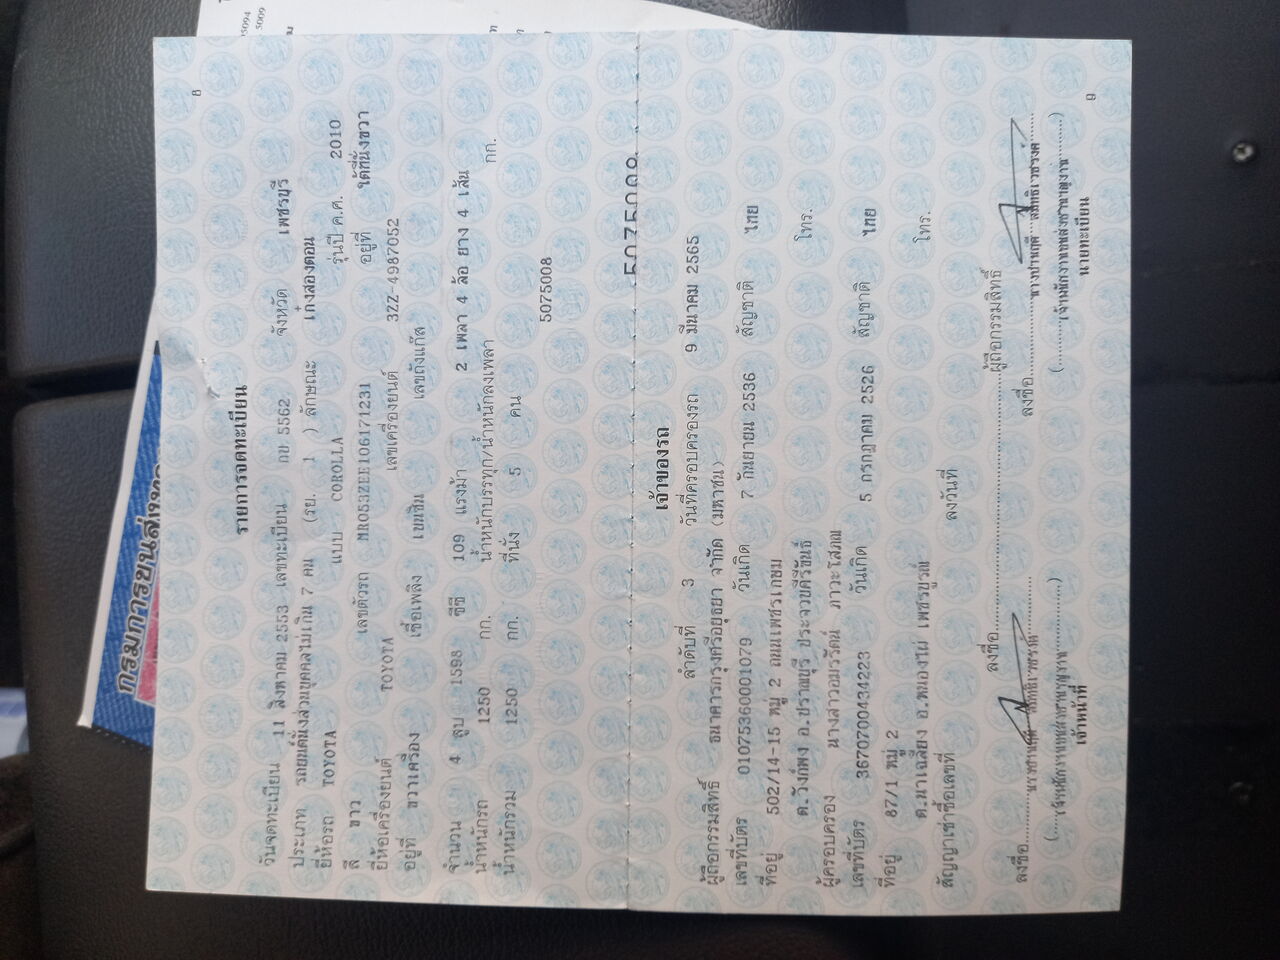 8
รายการจดทะเบียน
วันจดทะเบียน 11 สิงหาคม 2553 เลขทะเบียน กย 5562 จังหวัด เพชรบุรี
ประเภท รถยนต์นั่งส่วนบุคคลไม่เกิน 7 คน (รย. 1 ) ลักษณะ เก๋งสองตอน
ยี่ห้อรถ TOYOTA แบบ COROLLA รุ่นปี ค.ศ. 2010
สี ขาว เลขตัวรถ MR053ZEE106171231 อยู่ที่ ใต้ที่นั่งขวา
ยี่ห้อเครื่องยนต์ TOYOTA เลขเครื่องยนต์ 3ZZ-4987052
อยู่ที่ ขวาเครื่อง เชื่อเพลิง เบนซิน เลขถังแก๊ส
จำนวน 4 สูบ 1598 ซีซี 109 แรงม้า 2 เพลา 4 ล้อ ยาง 4 เส้น
น้ำหนักรถ 1250 กก. น้ำหนักบรรทุก/น้ำหนักลงเพลา กก.
น้ำหนักรวม 1250 กก. ที่นั่ง 5 คน
5075008
เจ้าของรถ
ลำดับที่ 3 วันที่ครอบครองรถ 9 มีนาคม 2565
ผู้ถือกรรมสิทธิ์ ธนาคารกรุงศรีอยุธยา จำกัด (มหาชน)
เลขที่บัตร 0107536001079 วันเกิด 7 กันยายน 2536 สัญชาติ ไทย
ที่อยู่ 502/14-15 หมู่ 2 ถนนเพชรเกษม
ต.วังก์พง อ.ปราณบุรี ประจวบคีรีขันธ์ โทร.
ผู้ครอบครอง นางสาวอมรรัตน์ ภาวะโสภณ
เลขที่บัตร 3670700434223 วันเกิด 5 กรกฎาคม 2526 สัญชาติ ไทย
ที่อยู่ 87/1 หมู่ 2
ต.นาเฉลียง อ.หนองไผ่ เพชรบูรณ์ โทร.
สัญญาเช่าซื้อเลขที่ ลงวันที่
ลงชื่อ ผู้ถือกรรมสิทธิ์
ลงชื่อ ลงชื่อ
เจ้าหน้าที่ นายทะเบียน
9
กรมการขนส่งทางบก